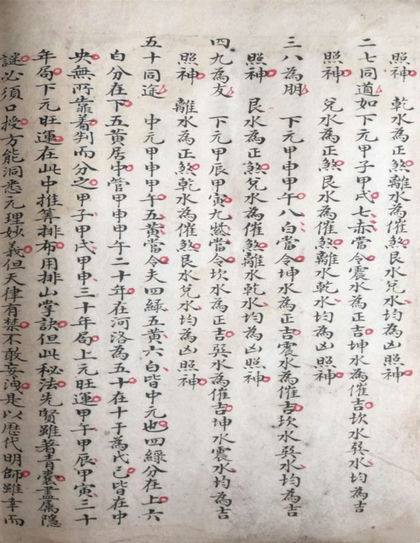 照神 離水為正煞乾水為催煞艮水兌水均為凶照神
二七同道如下元甲子甲戌七赤當令震水為正吉坤水為催吉坎水巽水均為吉
照神 兌水為正煞艮水為催煞離水乾水均為凶照神
三八為朋 下元甲申甲午八白當令坤水為正吉震水為催吉坎水巽水均為吉
照神 艮水為正煞兌水為催煞離水乾水均為凶照神
四九為友 下元甲辰甲寅九紫當令坎水為正吉巽水為催吉坤水震水均為吉
照神 離水為正煞乾水為催煞艮水兌水均為凶照神
五十同途 中元甲申甲午五黃當令夫四綠五黃六白皆中元也四綠分在上六
白分在下五黃居中管甲申甲午二十年在河洛為五十在十干為戊己皆在中
央無所靠着判而分之甲子甲戌甲申三十年局上元旺運甲午甲辰甲寅三十
年局下元旺運在此中推算排布用排山掌訣但此秘法先賢雖著青囊盡屬隱
謎必須口授方能洞悉元理妙義但天律有禁不敢妄洩是以歷代明師雖幸而